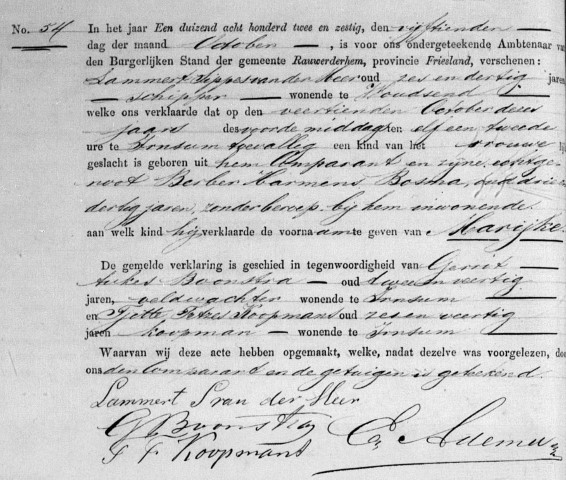 No. 54
In het jaar Een duizend acht honderd twee en zestig, den vijftienden
dag der maand October, is voor ons ondergeteekende Ambtenaar van
den Burgerlijken Stand der gemeente Rauwerderhem, provincie Friesland, verschenen:
Lammert Sippes van der Meer oud zes en dertig jaren
schipper wonende te Woudsend
welke ons verklaarde dat op den veertienden October dezes
jaars des voormiddags ten elf een tweede
ure te Irnsum toevallig een kind van het vrouwe
geslacht is geboren uit hem Comparant en zijne echtge
noot Berber Harmens Bosma, oud drie
dertig jaren, zonder beroep bij hem inwonende
aan welk kind hij verklaarde de voornaam te geven van Marijke.
De gemelde verklaring is geschied in tegenwoordigheid van Gerrit
Aukes Boonstra oud twee en veertig
jaren, veldwachter wonende te Irnsum
en Tjette Fokes Koopmans oud zes en veertig
jaren koopman wonende te Irnsum
Waarvan wij deze acte hebben opgemaakt, welke, nadat dezelve was voorgelezen, doo
ons den Comparant en de getuigen is geteekend.
Lammert S van der Meer
G A Boonstra
T F Koopmans
Adema